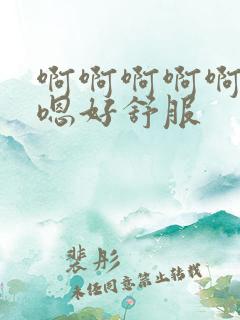 啊啊啊啊啊
嗯好舒服
裴彤
未经同意禁止转载